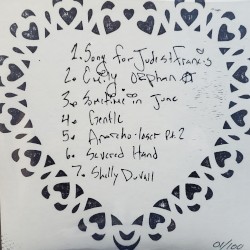 1. Song for Jude St Francis
2. Emily Orphan
3. Sometime in June
4. Gentle
5. Anarcho-loser Pt. 2
6. Severed Hand
7. Shelly Duvall
01/100